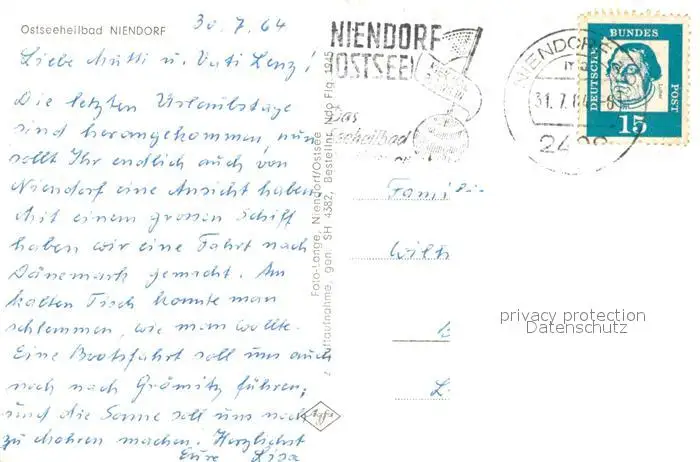 Ostseeheilbad NIENDORF
30.7.64
Liebe Mutti u. Vati Lenz!
Die letzten Urlaubstage
sind herangekommen, nun
sollt Ihr endlich auch von
Niendorf eine Ansicht haben.
Mit einem grossen Schiff
haben wir eine Fahrt nach
Dänemark gemacht. Am
kalten Tisch konnte man
schlemmen, wie man wollte.
Eine Bootsfahrt soll uns auch
noch nach Grömitz führen,
und die Sonne soll uns noch
zu Mohren machen. Herzlichst
Eure Lisa
Foto-Lange, Niendorf/Ostsee
Luftaufnahme, gen. SH 4382, Bestellnr. Ndo Flg 1945
Agfa
NIENDORF
OSTSEE
Das
seeheilbad
NIENDORF
31.7.64
DEUTSCHE
BUNDES
POST
Luther
15
Fami
Wilh
privacy protection
Datenschutz